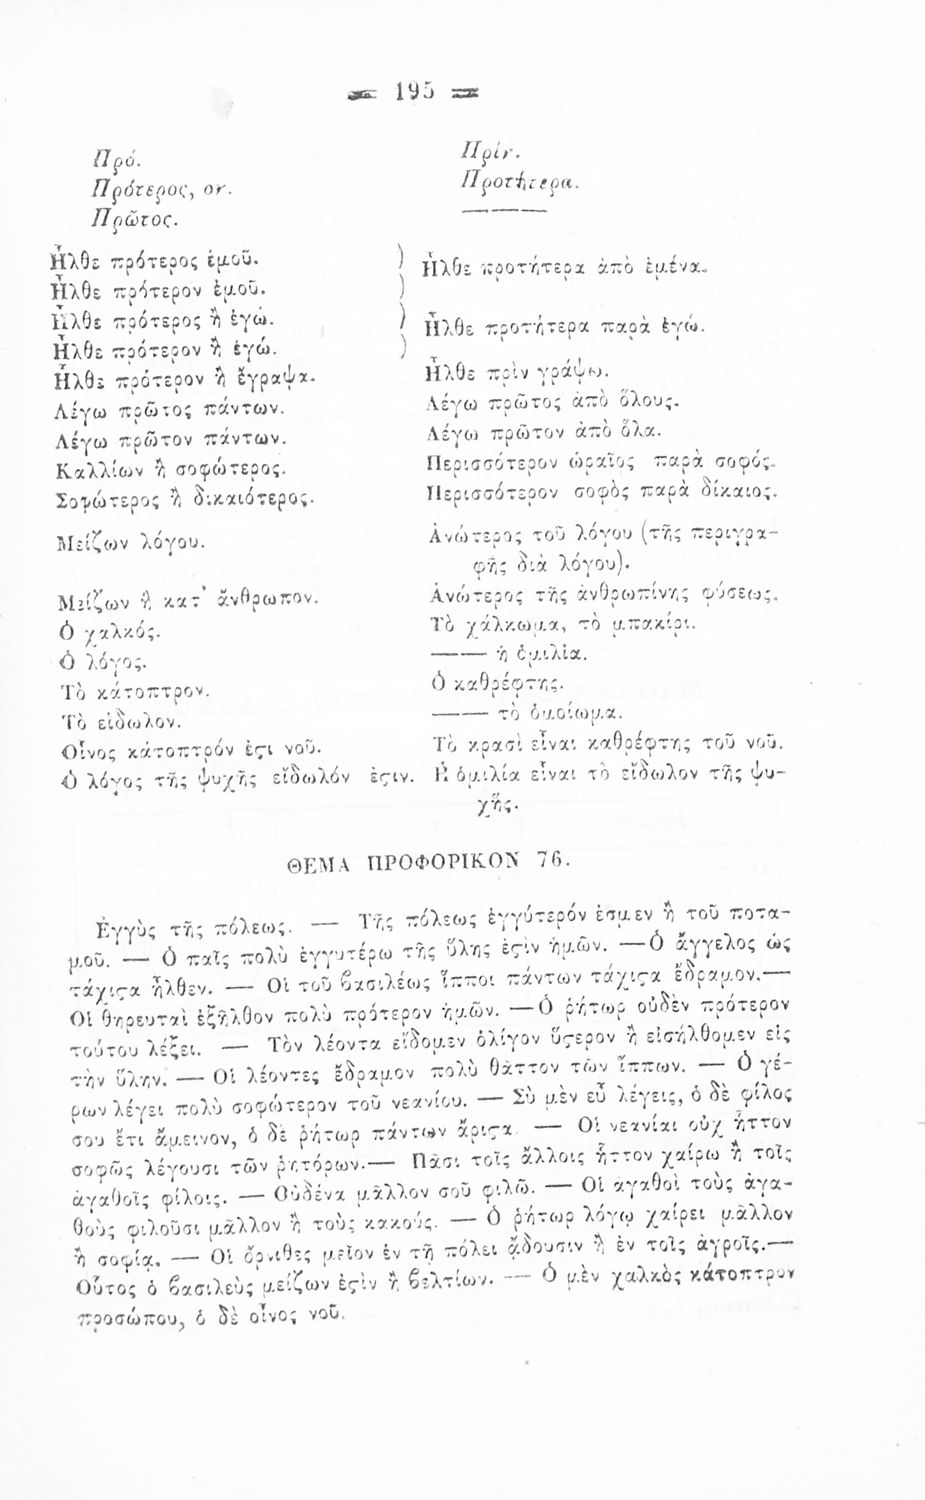 195
Πρό.
Πρότερος, ον.
Πρῶτος.
Πρίν.
Προτήτερα.
Ἦλθε πρότερος ἐμοῦ.
Ἦλθε πρότερον ἐμοῦ.
Ἦλθε προτήτερα ἀπὸ ἐμένα.
Ἦλθε πρότερος ἢ ἐγώ.
Ἦλθε πρότερον ἢ ἐγώ.
Ἦλθε προτήτερα παρὰ ἐγώ.
Ἦλθε πρότερον ἢ ἔγραψα.
Ἦλθε πρὶν γράψω.
Λέγω πρῶτος πάντων.
Λέγω πρῶτος ἀπὸ ὅλους.
Λέγω πρῶτον πάντων.
Λέγω πρῶτον ἀπὸ ὅλα.
Καλλίων ἢ σοφώτερος.
Περισσότερον ὡραῖος παρὰ σοφός.
Σοφώτερος ἢ δικαιότερος.
Περισσότερον σοφὸς παρὰ δίκαιος.
Μείζων λόγου.
Ἀνώτερος τοῦ λόγου (τῆς περιγρα-
φῆς διὰ λόγου).
Μείζων ἢ κατ᾽ ἄνθρωπον.
Ἀνώτερος τῆς ἀνθρωπίνης φύσεως.
Ὁ χαλκός.
Τὸ χάλκωμα, τὸ μπακίρι.
Ὁ λόγος.
—— ἡ ὁμιλία.
Τὸ κάτοπτρον.
Ὁ καθρέφτης.
Τὸ εἴδωλον.
—— τὸ ὁμοίωμα.
Οἶνος κάτοπτρόν ἐϛι νοῦ.
Τὸ κρασὶ εἶναι καθρέφτης τοῦ νοῦ.
Ὁ λόγος τῆς ψυχῆς εἴδωλόν ἐϛιν.
Ἡ ὁμιλία εἶναι τὸ εἴδωλον τῆς ψυ-
χῆς.
ΘΕΜΑ ΠΡΟΦΟΡΙΚΟΝ 76.
Ἐγγὺς τῆς πόλεως. — Τῆς πόλεως ἐγγύτερόν ἐσμεν ἢ τοῦ ποτα-
μοῦ. — Ὁ παῖς πολὺ ἐγγυτέρω τῆς ὕλης ἐϛὶν ἡμῶν. — Ὁ ἄγγελος ὡς
τάχιϛα ἦλθεν. — Οἱ τοῦ βασιλέως ἵπποι πάντων τάχιϛα ἔδραμον.—
Οἱ θηρευταὶ ἐξῆλθον πολὺ πρότερον ἡμῶν. — Ὁ ῥήτωρ οὐδὲν πρότερον
τούτου λέξει. — Τὸν λέοντα εἴδομεν ὀλίγον ὕϛερον ἢ εἰσήλθομεν εἰς
τὴν ὕλην. — Οἱ λέοντες ἔδραμον πολὺ θᾶττον τῶν ἵππων. — Ὁ γέ-
ρων λέγει πολὺ σοφώτερον τοῦ νεανίου. — Σὺ μὲν εὖ λέγεις, ὁ δὲ φίλος
σου ἔτι ἄμεινον, ὁ δὲ ῥήτωρ πάντων ἄριϛα — Οἱ νεανίαι οὐχ ἧττον
σοφῶς λέγουσι τῶν ῥητόρων.— Πᾶσι τοῖς ἄλλοις ἧττον χαίρω ἢ τοῖς
ἀγαθοῖς φίλοις. — Οὐδένα μᾶλλον σοῦ φιλῶ. — Οἱ ἀγαθοὶ τοὺς ἀγα-
θοὺς φιλοῦσι μᾶλλον ἢ τοὺς κακούς. — Ὁ ῥήτωρ λόγῳ χαίρει μᾶλλον
ἢ σοφίᾳ. — Οἱ ὄρνιθες μεῖον ἐν τῇ πόλει ᾄδουσιν ἢ ἐν τοῖς ἀγροῖς.—
Οὗτος ὁ βασιλεὺς μείζων ἐϛὶν ἢ βελτίων. — Ὁ μὲν χαλκὸς κάτοπτρον
προσώπου, ὁ δὲ οἶνος νοῦ.